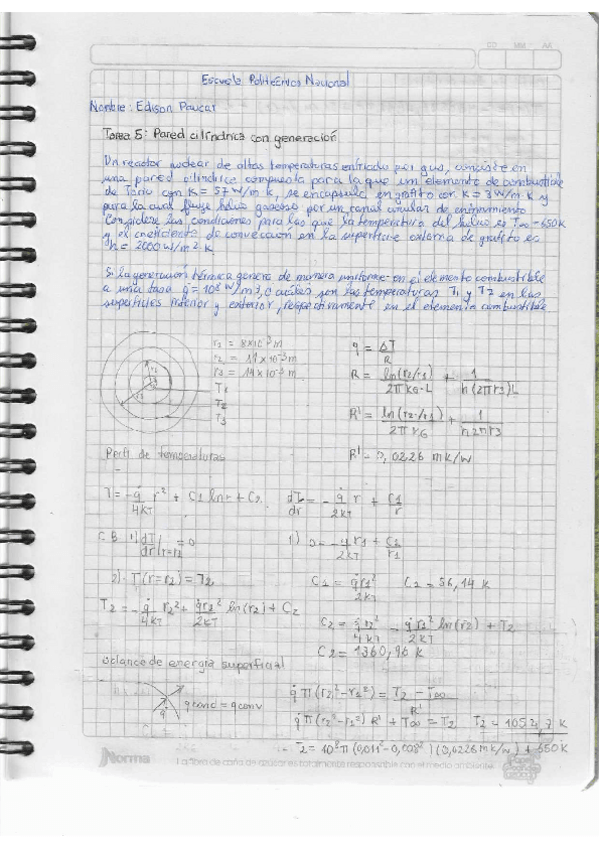 Escuela Politécnica Nacional
Nombre: Edison Paucar
Tarea 5: Pared cilíndrica con generación
Un reactor nuclear de altas temperaturas enfriado por gas, consiste en
una pared cilíndrica compuesta para la que un elemento de combustible
de Torio con K = 57 W/m·k, se encapsula en grafito con K = 3 W/m·k y
para la cual fluye helio gaseoso por un canal anular de enfriamiento
Considere las condiciones para las que la temperatura del helio es T∞ = 650k
y el coeficiente de convección en la superficie externa de grafito es
h = 2000 W/m² k.
Si la generación térmica genera de manera uniforme en el elemento combustible
a una tasa q̇ = 10⁸ W/m3, cuáles son las temperaturas T1 y T2 en las
superficies interior y exterior, respectivamente en el elemento combustible
r1 = 8x10⁻³ m
r2 = 11x10⁻³ m
r3 = 14x10⁻³ m
T1
T2
T3
q = ΔT/R
R = ln(r2/r1)/2π kG·L + 1/h(2πr3)L
R' = ln(r2/r1)/2π kG + 1/h2πr3
R' = 0,0226 mk/w
Perfil de temperaturas
T = -q̇/4kT r² + C1 ln r + C2 dT/dr = -q̇/2kT r + C1/r
C.B 1) dT/dr|r=r1 = 0 1) 0 = -q̇ r1/2kT + C1/r1
2). T(r=r2) = T2 C1 = q̇r1²/2kT C1 = 56,14 k
T2 = -q̇/4kT r2² + q̇r1²/2kT ln(r2) + C2
C2 = q̇ r2²/4kT - q̇r1²/2kT ln(r2) + T2
C2 = 1360,96 k
balance de energía superficial
q cond = q conv
q̇ π (r2²-r1²) = T2 - T∞/R'
q̇ π (r2²-r1²) R' + T∞ = T2 T2 = 1054,7 k
T2 = 10⁸π (0,011²-0,008²)(0,0226mk/w) + 650k
Norma
La fibra de caña de azúcar es totalmente responsable con el medio ambiente